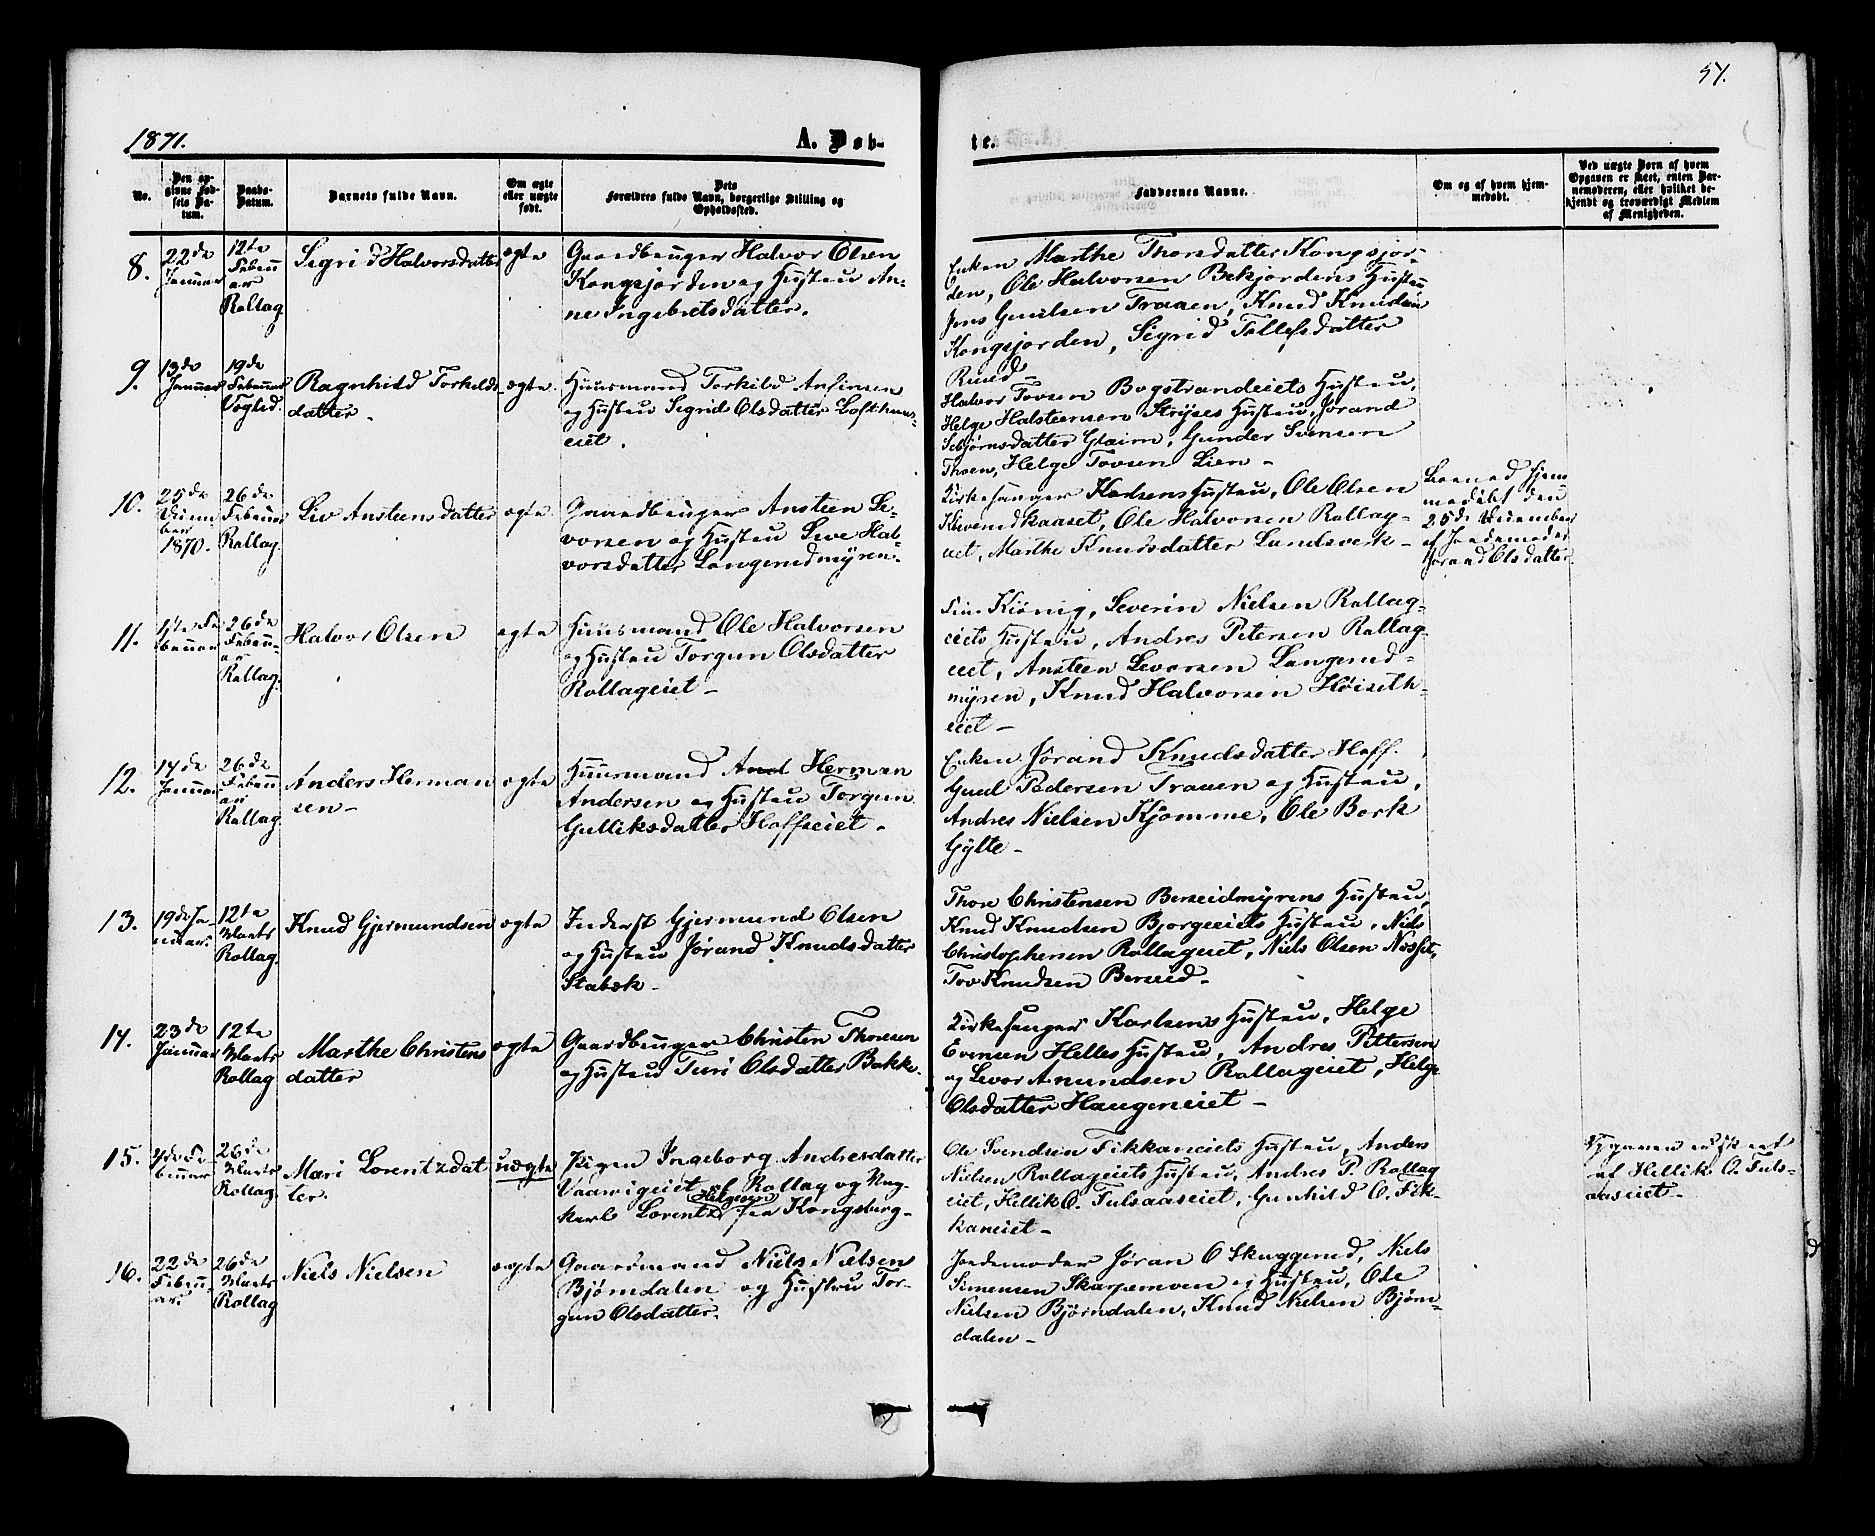 57.
1871.
A. Døb-
te.
No.
Den op-
givne Fød-
sels Da-
tum.
Daabs-
Datum.
Barnets fulde Navn.
Om ægte
eller uægte
født.
Dets
Forældres fulde Navn, borgerlige Stilling og
Opholdssted.
Faddernes Navne.
Om og af hvem hjem-
medøbt.
Ved uægte Børn af hvem
Opgaven er skeet, enten Bar-
nemoderen, eller hvilket be-
kjendt og troværdigt Medlem
af Menigheden.
8.
22de
Januar
12te
Februar
Rollag
Sigrid Halvorsdatter
ægte
Gaardbruger Halvor Olsen
Kongsjorden og Hustru An-
ne Ingebretsdatter.
Enken Marthe Thorsdatter Kongsjor-
den, Ole Halvorsen Bekjordens Hustru
Jens Gunulsen Traaen, Knud Knudsen
Kongsjorden, Sigrid Tollefsdatter
Ruud
9.
13de
Januar
19de
Februar
Vegled.
Ragnhild Torkilds-
datter
ægte
Huusmand Torkild Anfinsen
og Hustru Sigrid Olsdatter Lofthuus-
eiet.
Halvor Tovsen Bogstrandeiets Hustru,
Helge Halsteensen Stryses Hustru, Jørand
Sebjørnsdatter Glaim, Gunder Svensen
Thoen, Helge Tovsen Lien
10.
25de
Decem
ber
1870.
26de
Februar
Rollag
Liv Ansteensdatter
ægte
Gaardbruger Ansteen Le-
vorsen og Hustru Live Hal-
vorsdatter Langerudmyren
Kirkesanger Karlsens Hustru, Ole Olsen
Kaaset, Ole Halvorsen Rollag-
eiet, Marthe Knudsdatter Landsverk
hjem
medøbt den
25de December
af Jordemoder
Jørand Olsdatter
11.
Februar
26de
Februar
Rollag
Halvor Olsen
ægte
Huusmand Ole Halvorsen
og Hustru Torgun Olsdatter
Rollageiet
Kiönig, Severin Nielsen Rollag-
eiets Hustru, Andres Petersen Rollag-
eiet, Ansteen Levorsen Langerud-
myren, Knud Halvorsen Høiseth-
eiet
12.
14de
Januar
26de
Februar
Rollag
Anders Herman
sen
ægte
Huusmand And Herman
Andersen og Hustru Torgun
Gulliksdatter Hoffseiet
Enken Jørand Knudsdatter Hoff.
Guul Pedersen Traaen og Hustru,
Andres Nielsen Kjømme, Ole Bork
Gylte
13.
19de Ja-
nuar.
12te
Marts
Rollag
Knud Gjermundsen
ægte
Inderst Gjermund Olsen
og Hustru Jørand Knudsdatter
Stabæk
Thor Christensen Berseidmyrens Hustru,
Knud Knudsen Bjorgeeiets Hustru, Niels
Christophersen Rollageiet, Niels Olsen
Tov Knudsen Berseid
14.
23de
Januar
12te
Marts
Rollag
Marthe Christens
datter
ægte
Gaardbruger Christen Thorsen
og Hustru Turi Olsdatter Bakke
Kirkesanger Karlsens Hustru, Helge
Evensen Helles Hustru, Andres Pettersen
og Levor Amundsen Rollageiet, Helge
Olsdatter Haugeneiet
15.
7de Fe
bruar
26de
Marts
Rollag
Mari Lorentzdat
ter
uægte
Pigen Ingeborg Andresdatter
af Rollag og Ung-
Helgesen
karl Lorentz fra Kongsberg
Ole Svendsen Fikkaneiets Hustru, Anders
Nielsen Rollageiets Hustru, Andres P. Rollag
eiet, Hellik O. Tulsaaseiet, Gunhild O. Fik-
kaneiet
Opgaven er skeet
af Hellik O. Tuls-
aaseiet
16.
22de
Febru
ar.
26de
Marts
Rollag
Niels Nielsen
ægte
Gaardmand Niels Nielsen
Bjørndalen og Hustru Tor-
gun Olsdatter
Jordemoder Jøran O Skuggerud, Niels
Simensen Skarpemoen og Hustru, Ole
Nielsen Bjørndalen, Knud Nielsen Bjørn-
dalen